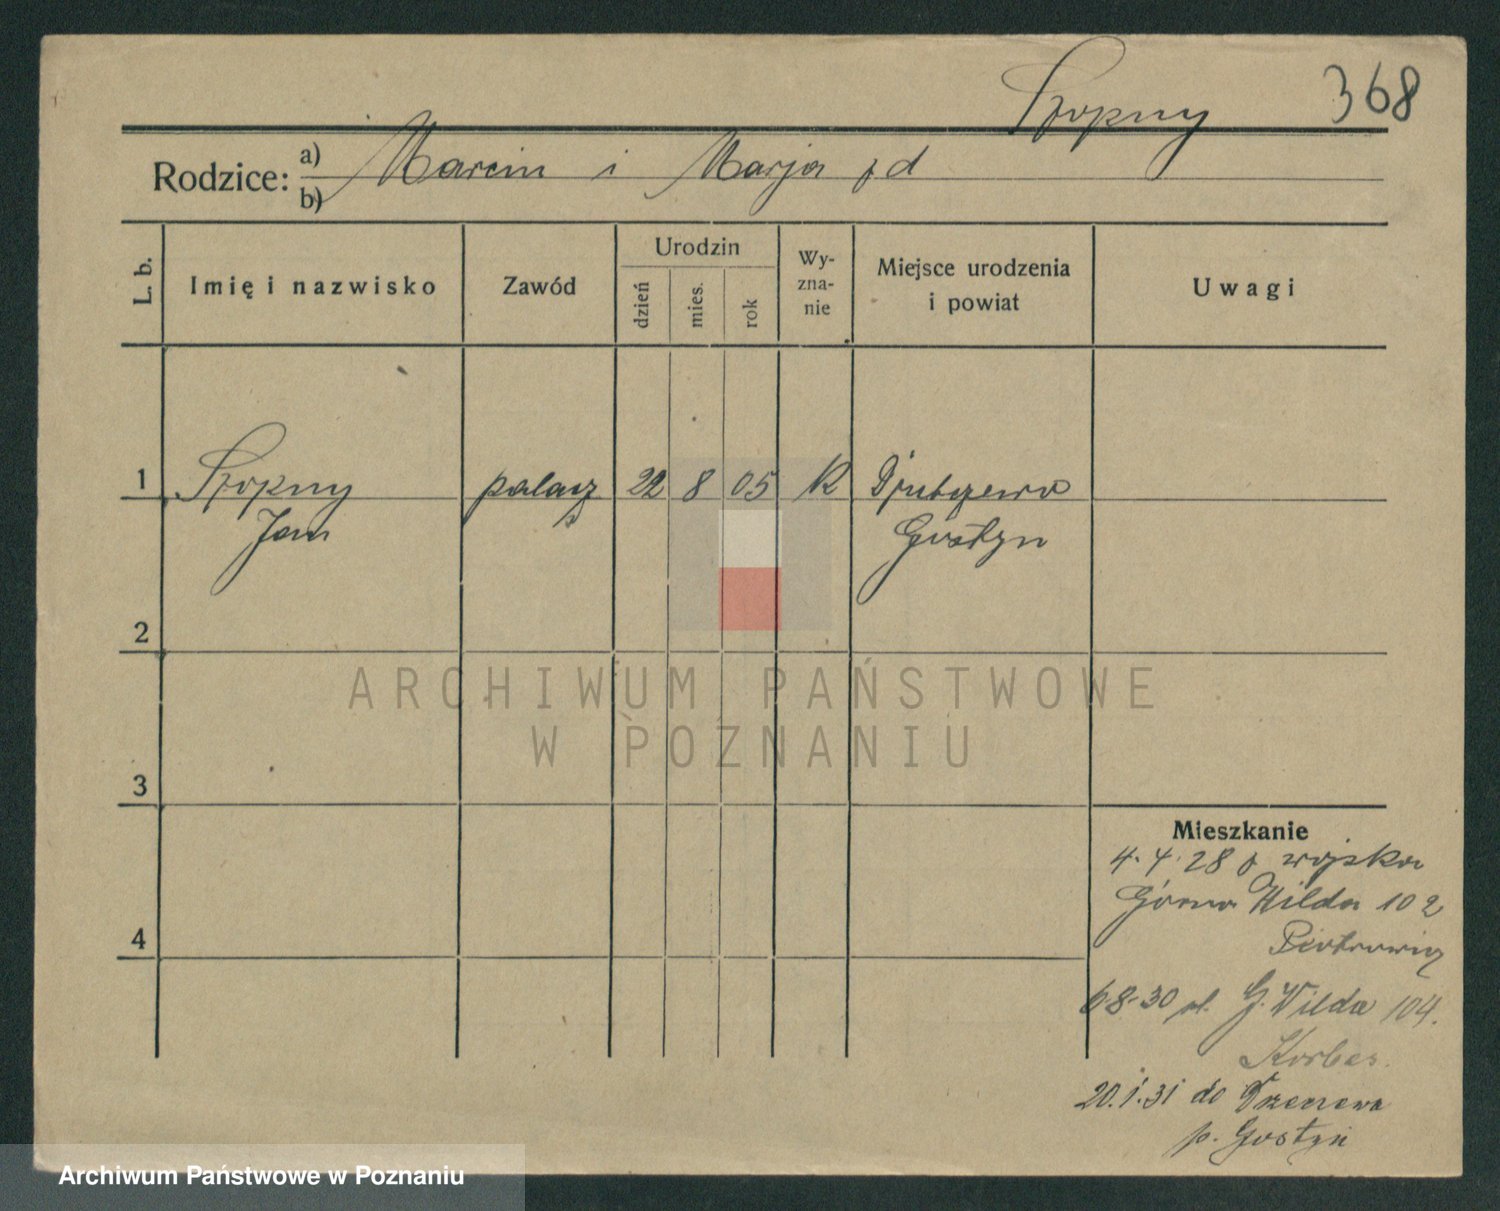 Szopny
368
Rodzice: a) Marcin i Marja z d
b)
L. b.
Imię i nazwisko
Zawód
Urodzin
dzień
mies.
rok
Wy-
zna-
nie
Miejsce urodzenia
i powiat
Uwagi
1
Szopny
palacz
22
8
05
K
Jan
Gostyn
2
ARCHIWUM PAŃSTWOWE
W POZNANIU
3
Mieszkanie
4.4.28 z wojska
Górna Wilda 102
4
Piotrowicz
68-30 ul. G. Wilda 104.
20.1.31 do
p. Gostyń
Archiwum Państwowe w Poznaniu